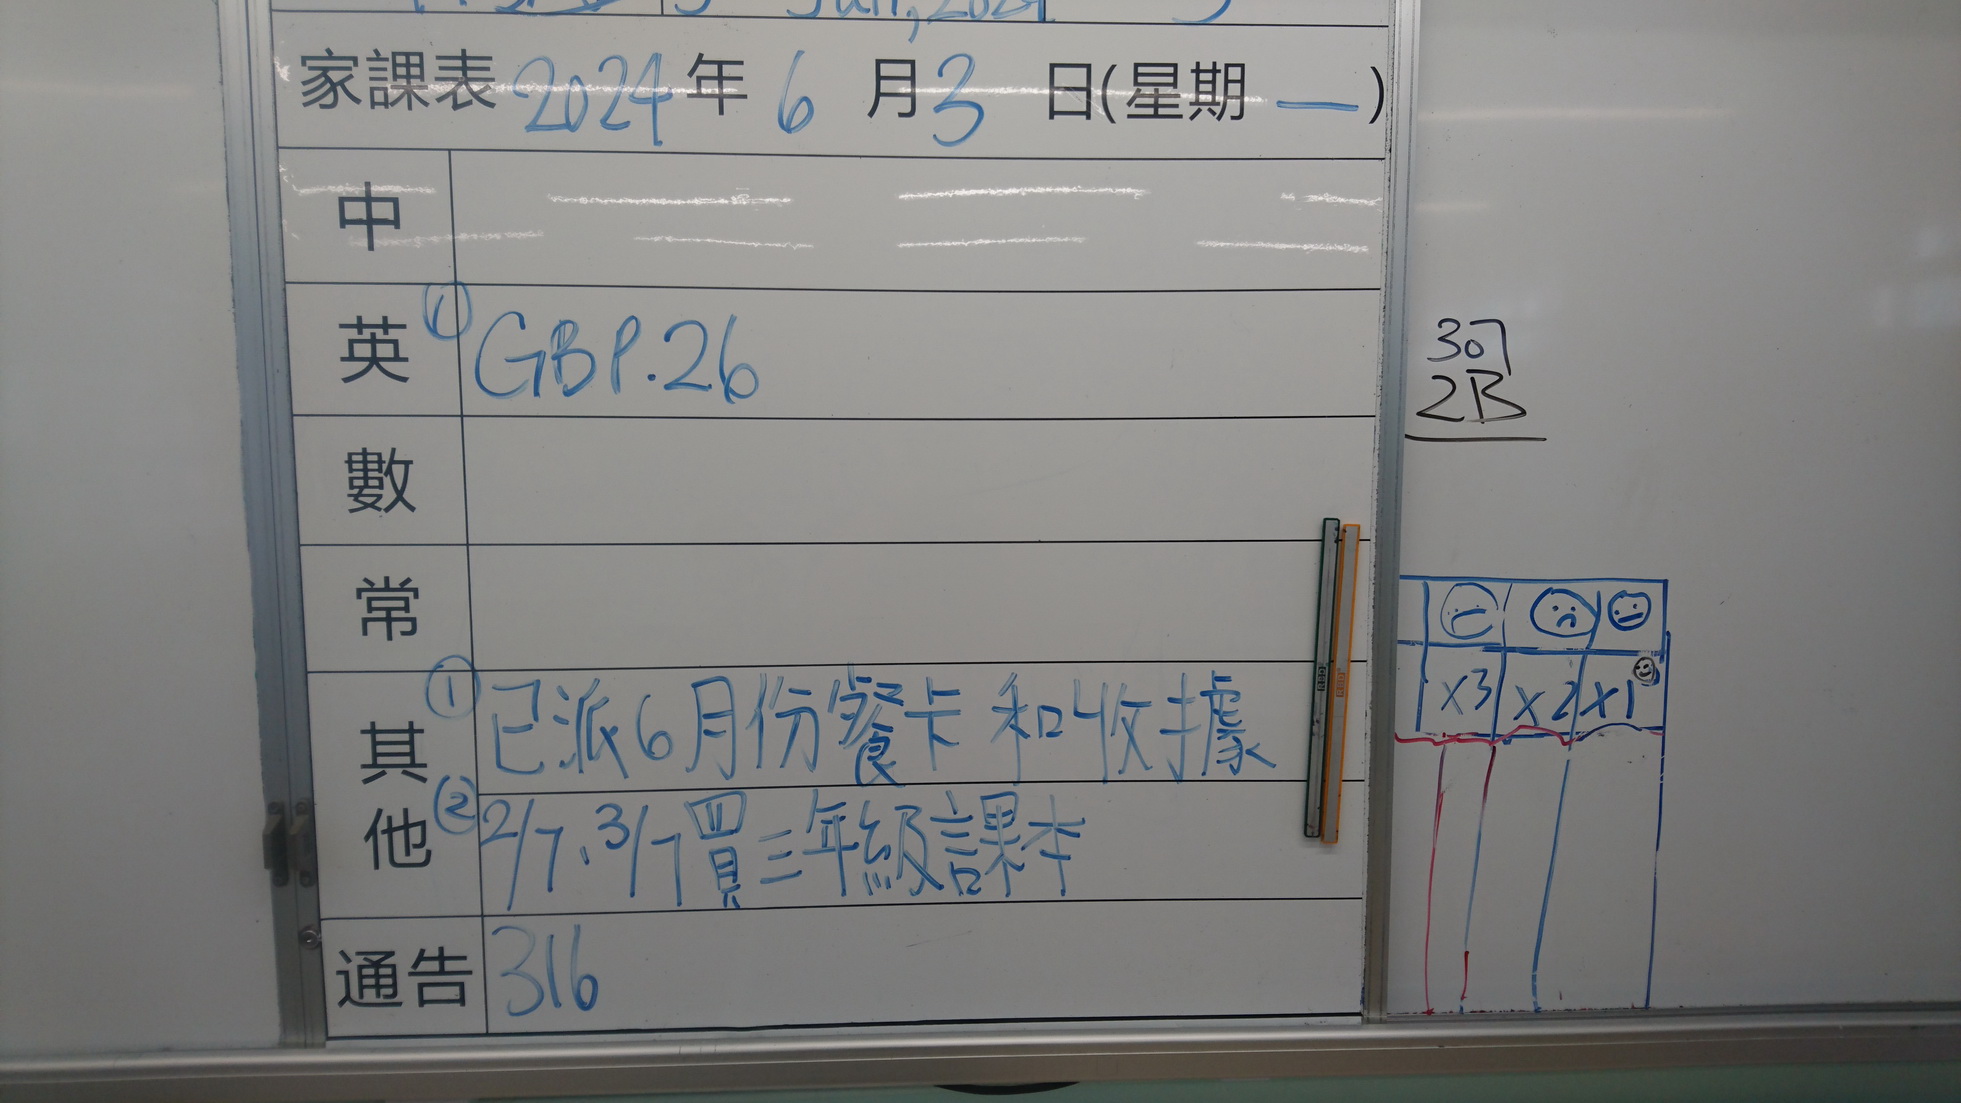 Jun, 2024
家課表 2024 年 6 月 3 日(星期 一 )
中
英 ① GBP.26
數
常
其他 ① 已派6月份餐卡 和收據
② 2/7、3/7買三年級課本
通告 316
2B
x3 x2 x1